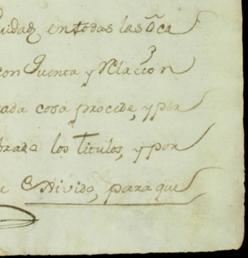 uidad en todas las Oca
con Quenta y Relacion
cada cosa procede, y por
brado los Titulos, y por
e Divido, para que